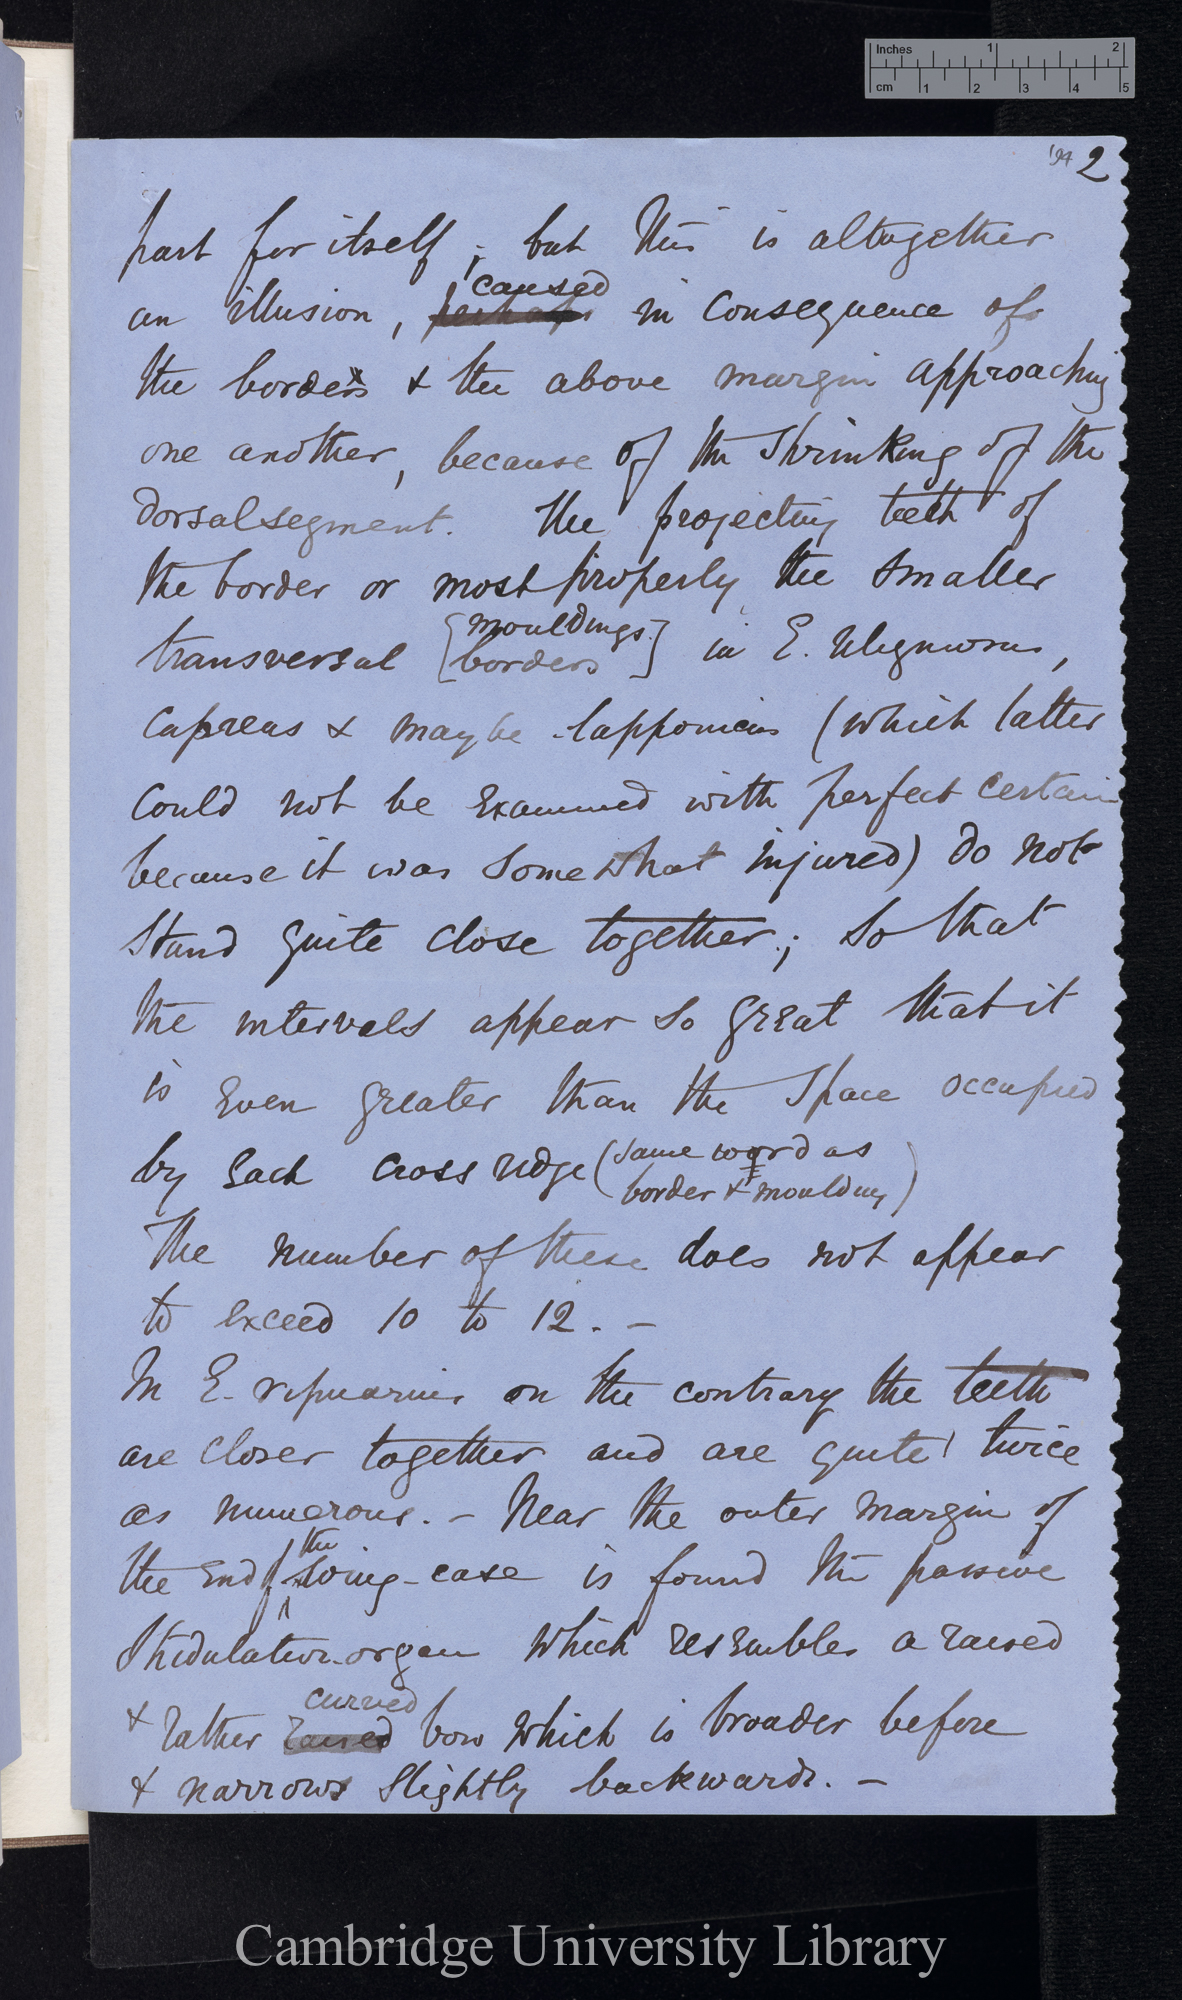 Inches 1 2
cm 1 2 3 4 5
2
part for itself; but this is altogether
caused
an illusion, perhaps in consequence of
the borders & the above margin approaching
one another, because of the shrinking of the
dorsal segment. The projecting teeth of
the border or most properly the smaller
mouldings
transversal [borders] in E. uliginosus,
cupreus & maybe lapponicus (which latter
could not be examined with perfect certain
because it was somewhat injured) do not
stand quite close together; so that
the intervals appear so great that it
is even greater than the space occupied
by each cross ridge (same word as
border & moulding)
The number of these does not appear
to exceed 10 to 12. —
In E. riparius on the contrary the teeth
are closer together and are quite twice
as numerous. — Near the outer margin of
the
the end of wing-case is found the passive
stridulation-organ which resembles a raised
curved
& rather raised bow which is broader before
& narrows slightly backwards. —
Cambridge University Library